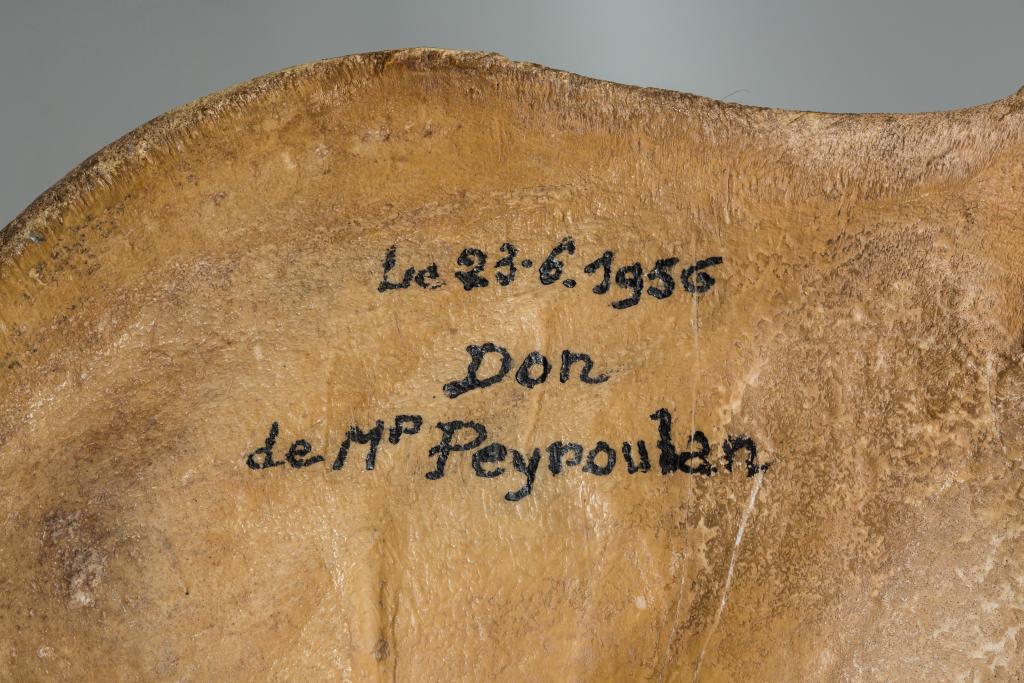 Le 23.6.1956
Don
de Mr Peyroulan